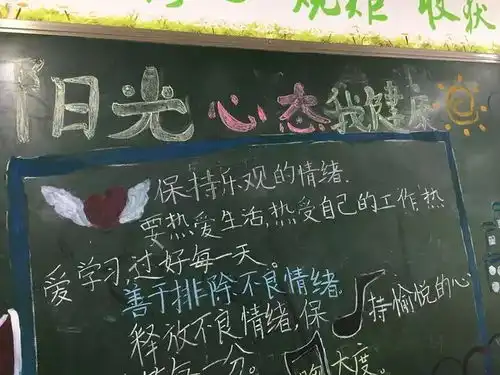 收获
阳光心态我健康
保持乐观的情绪.
要热爱生活,热受自己的工作热
爱学习,过好每一天。
善于排除不良情绪,
释放不良情绪,保
持愉悦的心
情每一分。
大度。